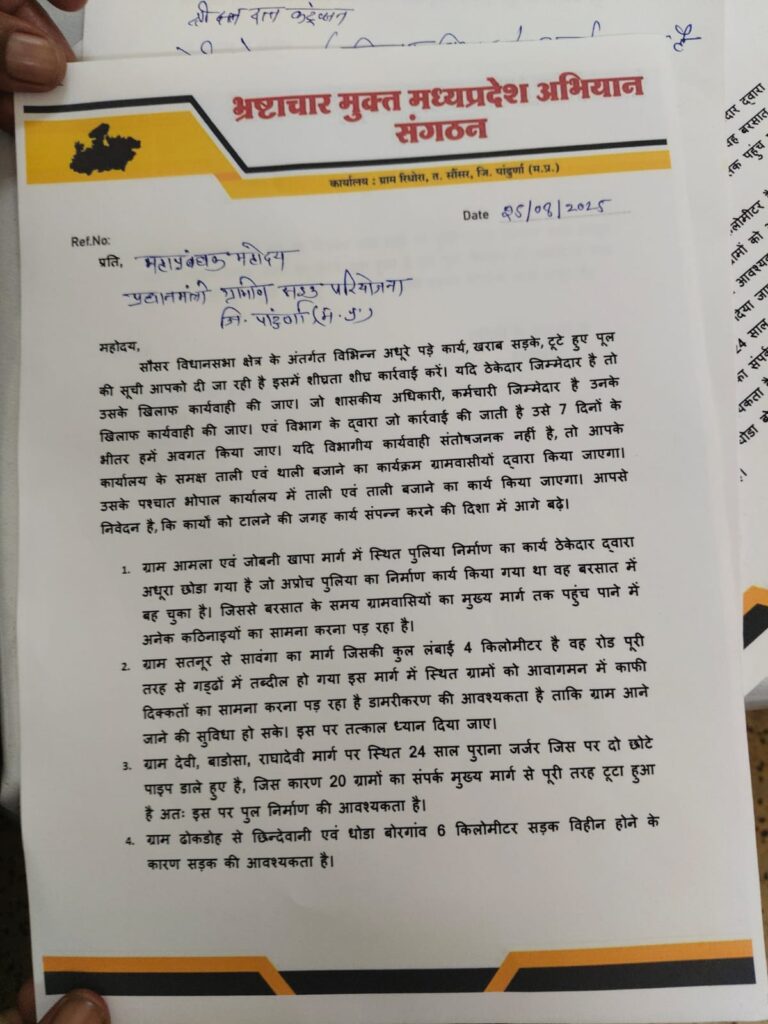 भ्रष्टाचार मुक्त मध्यप्रदेश अभियान
संगठन
कार्यालय : ग्राम रिधोरा, त. सौंसर, जि. पांढुर्णा (म.प्र.)
Date 25/08/2025
Ref.No:
प्रति, महाप्रबंधक महोदय
प्रधानमंत्री ग्रामीण सड़क परियोजना
जि. पांढुर्णा (म.प्र.)
महोदय,
सौसर विधानसभा क्षेत्र के अंतर्गत विभिन्न अधूरे पड़े कार्य, खराब सड़के, टूटे हुए पूल
की सूची आपको दी जा रही है इसमें शीघ्रता शीघ्र कार्रवाई करें। यदि ठेकेदार जिम्मेदार है तो
उसके खिलाफ कार्यवाही की जाए। जो शासकीय अधिकारी, कर्मचारी जिम्मेदार है उनके
खिलाफ कार्यवाही की जाए। एवं विभाग के द्वारा जो कार्रवाई की जाती है उसे 7 दिनों के
भीतर हमें अवगत किया जाए। यदि विभागीय कार्यवाही संतोषजनक नहीं है, तो आपके
कार्यालय के समक्ष ताली एवं थाली बजाने का कार्यक्रम ग्रामवासीयों द्वारा किया जाएगा।
उसके पश्चात भोपाल कार्यालय में ताली एवं ताली बजाने का कार्य किया जाएगा। आपसे
निवेदन है, कि कार्यो को टालने की जगह कार्य संपन्न करने की दिशा में आगे बढ़े।
1. ग्राम आमला एवं जोबनी खापा मार्ग में स्थित पुलिया निर्माण का कार्य ठेकेदार द्वारा
अधूरा छोडा गया है जो अप्रोच पुलिया का निर्माण कार्य किया गया था वह बरसात में
बह चुका है। जिससे बरसात के समय ग्रामवासियों का मुख्य मार्ग तक पहुंच पाने में
अनेक कठिनाइयों का सामना करना पड़ रहा है।
2. ग्राम सतनूर से सावंगा का मार्ग जिसकी कुल लंबाई 4 किलोमीटर है वह रोड पूरी
तरह से गड्ढों में तब्दील हो गया इस मार्ग में स्थित ग्रामों को आवागमन में काफी
दिक्कतों का सामना करना पड़ रहा है डामरीकरण की आवश्यकता है ताकि ग्राम आने
जाने की सुविधा हो सके। इस पर तत्काल ध्यान दिया जाए।
3. ग्राम देवी, बाडोसा, राघादेवी मार्ग पर स्थित 24 साल पुराना जर्जर जिस पर दो छोटे
पाइप डाले हुए है, जिस कारण 20 ग्रामों का संपर्क मुख्य मार्ग से पूरी तरह टूटा हुआ
है अतः इस पर पुल निर्माण की आवश्यकता है।
4. ग्राम ढोकडोह से छिन्देवानी एवं धोडा बोरगांव 6 किलोमीटर सड़क विहीन होने के
कारण सड़क की आवश्यकता है।